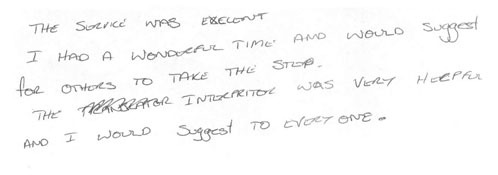 THE SERVICE WAS EXECLENT
I HAD A WONDERFUL TIME AND WOULD SUGGEST
FOR OTHERS TO TAKE THE STEP.
THE INTERPRITOR WAS VERY HELPFUL
AND I WOULD SUGGEST TO EVERYONE.